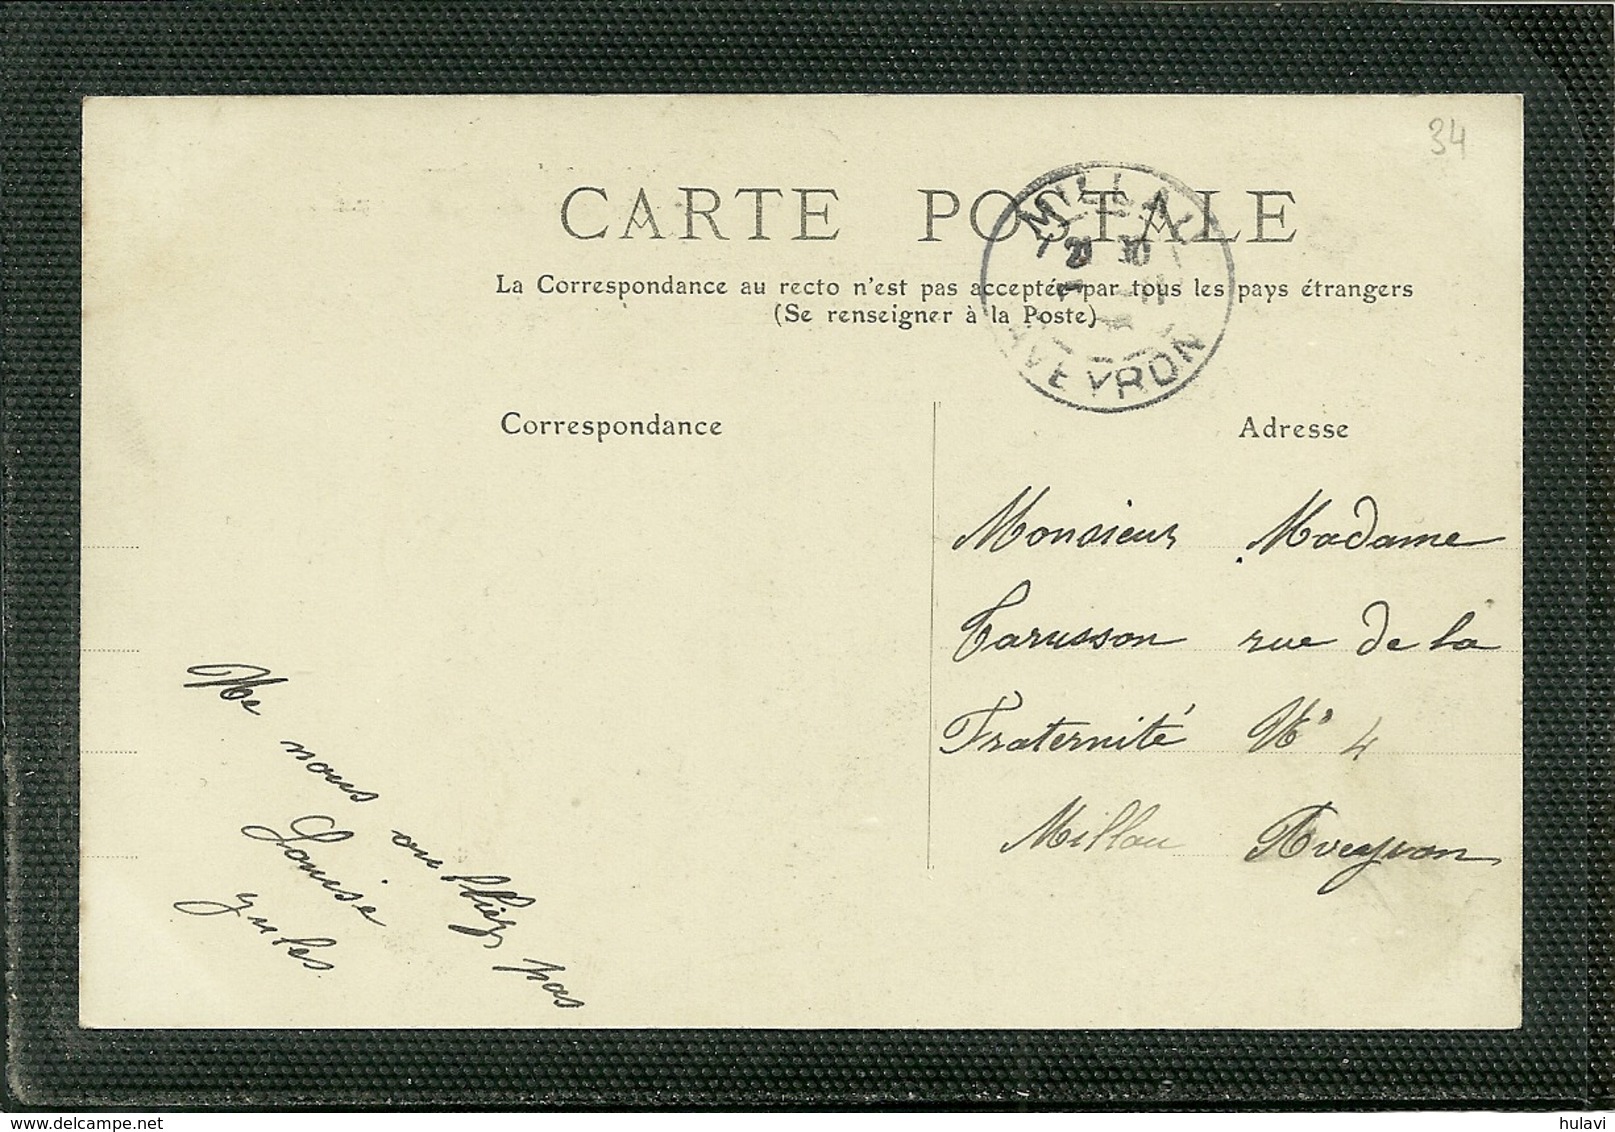 34
CARTE POSTALE
La Correspondance au recto n'est pas acceptée par tous les pays étrangers
(Se renseigner à la Poste)
MILLAU
AVEYRON
Correspondance
Adresse
Monsieur Madame
Tarusson rue de la
Fraternité N° 4
Millau Aveyron
Ne nous oubliez pas
Louise
yules
www.delcampe.net
hulavi